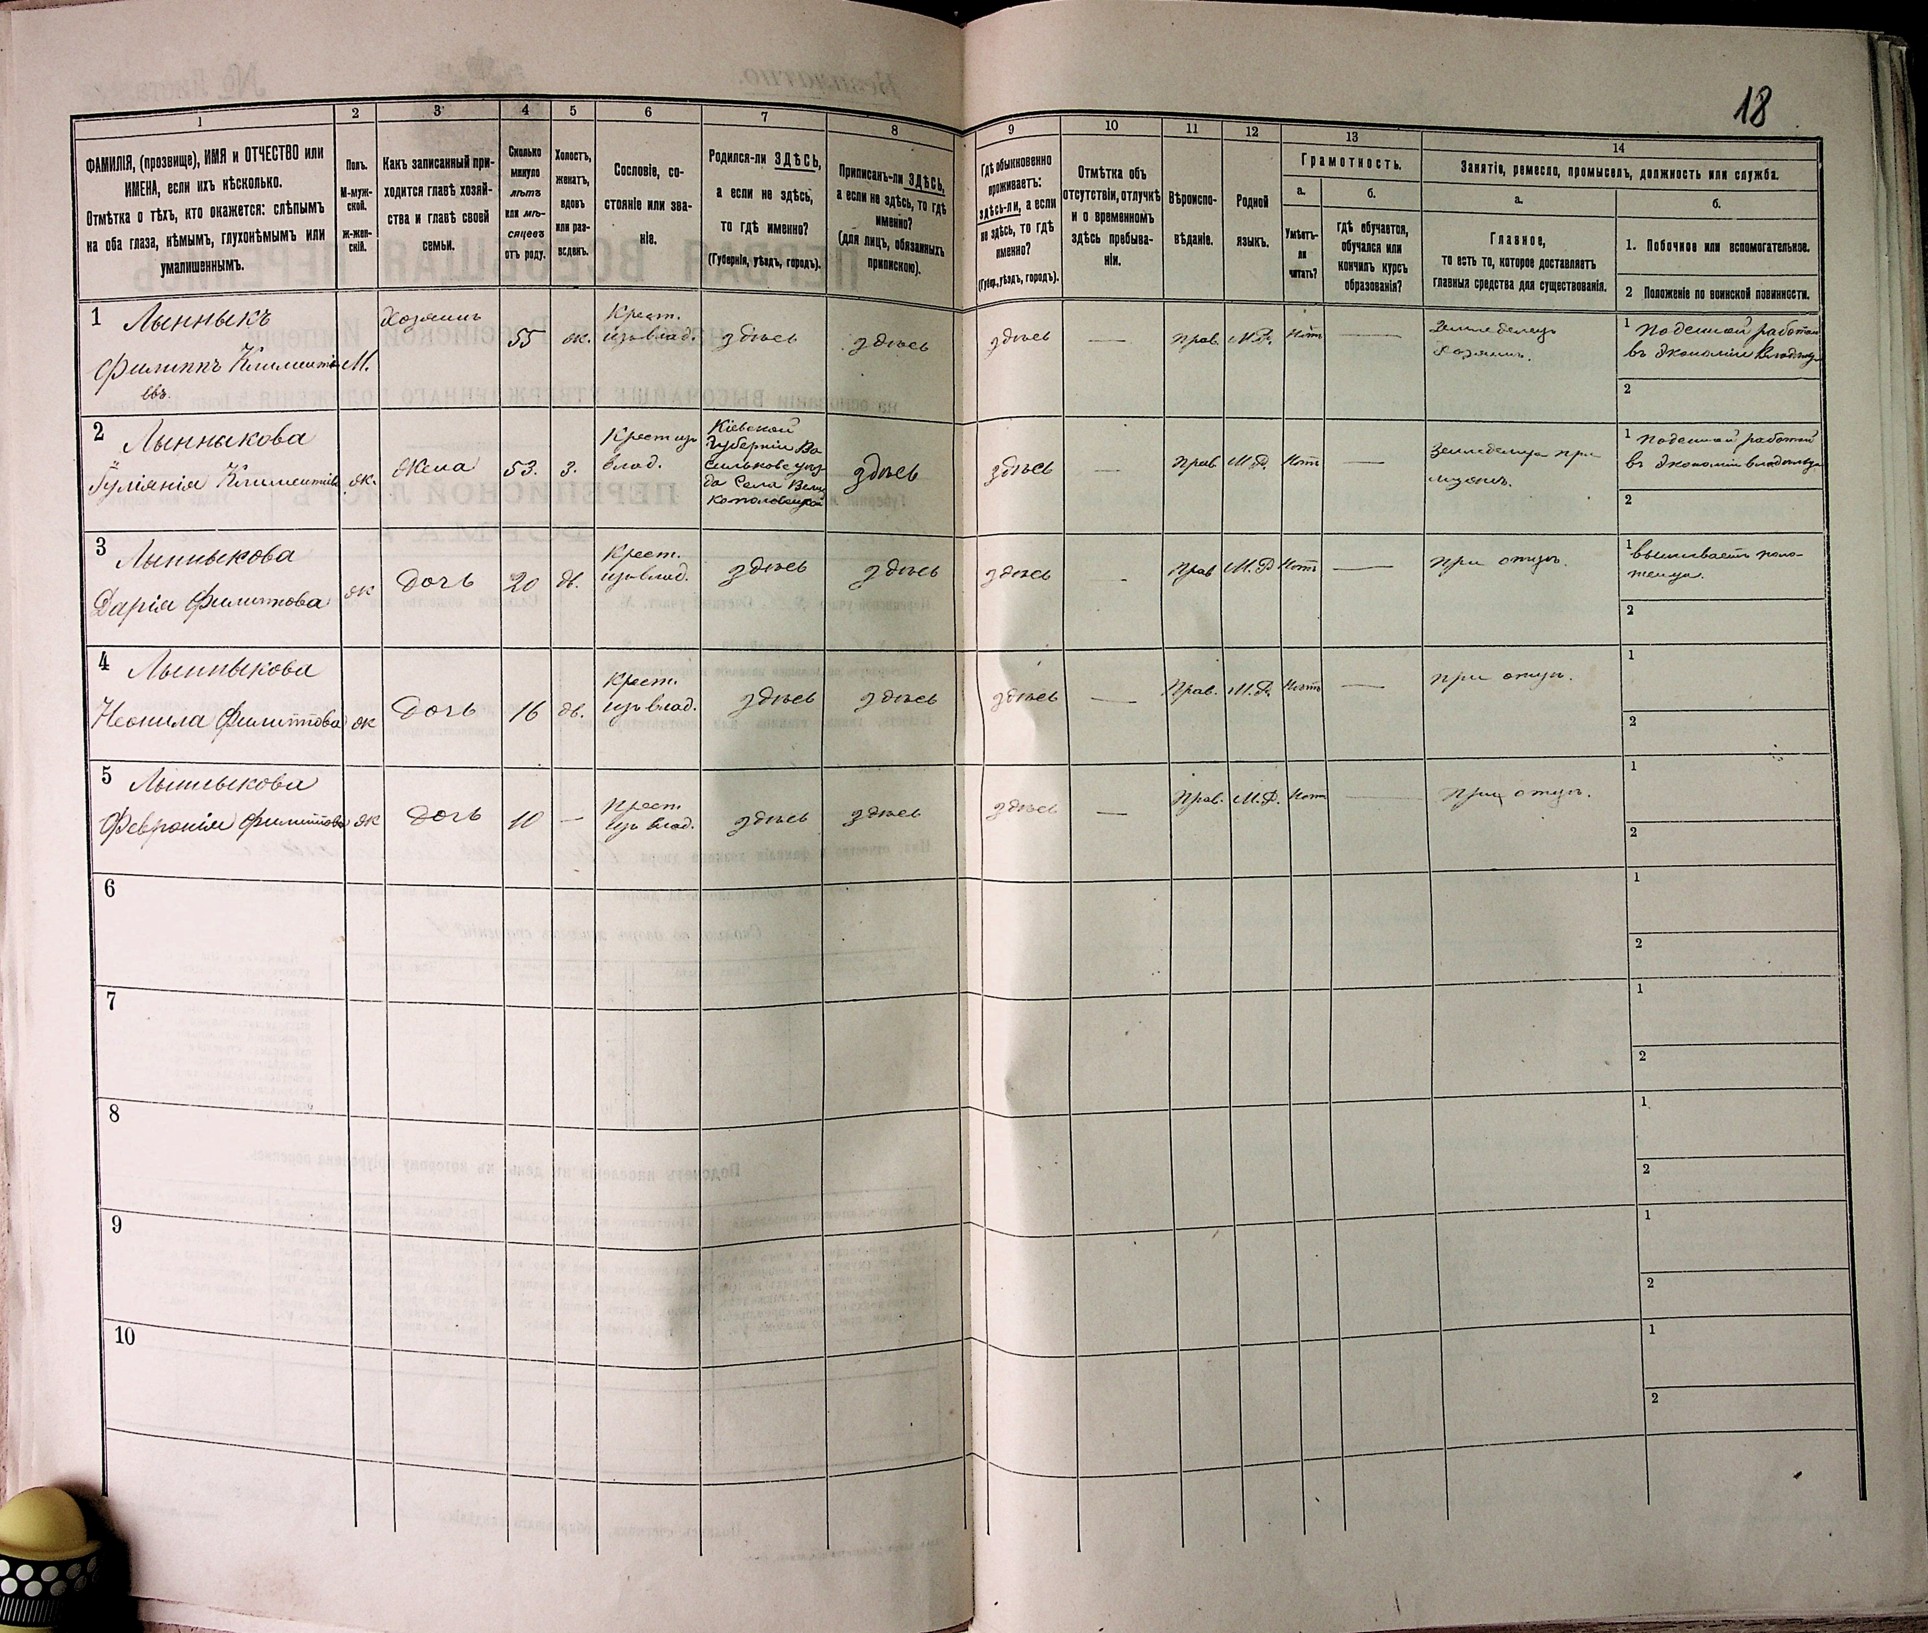 18
1
2
3
4
5
6
7
8
9
10
11
12
13
14
ФАМИЛІЯ, (прозвище), ИМЯ и ОТЧЕСТВО или
ИМЕНА, если ихъ нѣсколько.
Отмѣтка о тѣхъ, кто окажется: слѣпымъ
на оба глаза, нѣмымъ, глухонѣмымъ или
умалишеннымъ.
Полъ.
М-муж-
ской.
Ж-жен-
скій.
Какъ записанный при-
ходится главѣ хозяй-
ства и главѣ своей
семьи.
Сколько
минуло
лѣтъ
или мѣ-
сяцевъ
отъ роду.
Холостъ,
женатъ,
вдовъ
или раз-
веденъ.
Сословіе, со-
стояніе или зва-
ніе.
Родился-ли ЗДѢСЬ,
а если не здѣсь,
то гдѣ именно?
(Губернія, уѣздъ, городъ).
Приписанъ-ли ЗДѢСЬ,
а если не здѣсь, то гдѣ
именно?
(для лицъ, обязанныхъ
припискою).
Гдѣ обыкновенно
проживаетъ:
здѣсь-ли, а если
не здѣсь, то гдѣ
именно?
(Губер., уѣздъ, городъ).
Отмѣтка объ
отсутствіи, отлучкѣ
и о временномъ
здѣсь пребыва-
ніи.
Вѣроиспо-
вѣданіе.
Родной
языкъ.
Грамотность.
а.
б.
Умѣетъ-
ли
читать?
гдѣ обучается,
обучался или
кончилъ курсъ
образованія?
Занятіе, ремесло, промыселъ, должность или служба.
а.
б.
Главное,
то есть то, которое доставляетъ
главныя средства для существованія.
1. Побочное или вспомогательное.
2 Положеніе по воинской повинности.
1 Лынныкъ
Филиппъ Климентіе
евъ.
М.
Хозяинъ
55
ж.
Крест.
изъ влад.
здѣсь
здѣсь
здѣсь
—
Прав.
М.Р.
Нѣтъ
—
Земледелецъ
хозяинъ.
1 Поденной работой
въ экономіи
2
2 Лынныкова
Климентіева
ж.
Жена
53.
з.
Крест изъ
влад.
Кіевской
Губерніи Ва
сильковс уѣз
да Села Вели
кополовецкой
здѣсь
здѣсь
—
Прав
М.Р.
Нѣтъ
Земледелица при
мужѣ.
1 Поденной работой
въ экономіи владельца
2
3 Лынныкова
Дарія Филиппова
ж
Дочь
20
дв.
Крест.
изъ влад.
здѣсь
здѣсь
здѣсь
-
Прав
М.Р
Нѣтъ
—
При отцѣ.
1 вышиваетъ поло-
тенца.
2
4 Лынныкова
Неонила Филиппова
ж
Дочь
16
дв.
Крест.
изъ влад.
здѣсь
здѣсь
здѣсь
—
Прав.
М.Р.
Нѣтъ
—
При отцѣ.
1
2
5 Лынныкова
Февронія Филиппова
ж
Дочь
10
—
Крест
изъ влад.
здѣсь
здѣсь
здѣсь
—
Прав.
М.Р.
Нѣтъ
—
При отцѣ.
1
2
6
1
2
7
1
2
8
1
2
9
1
2
10
1
2